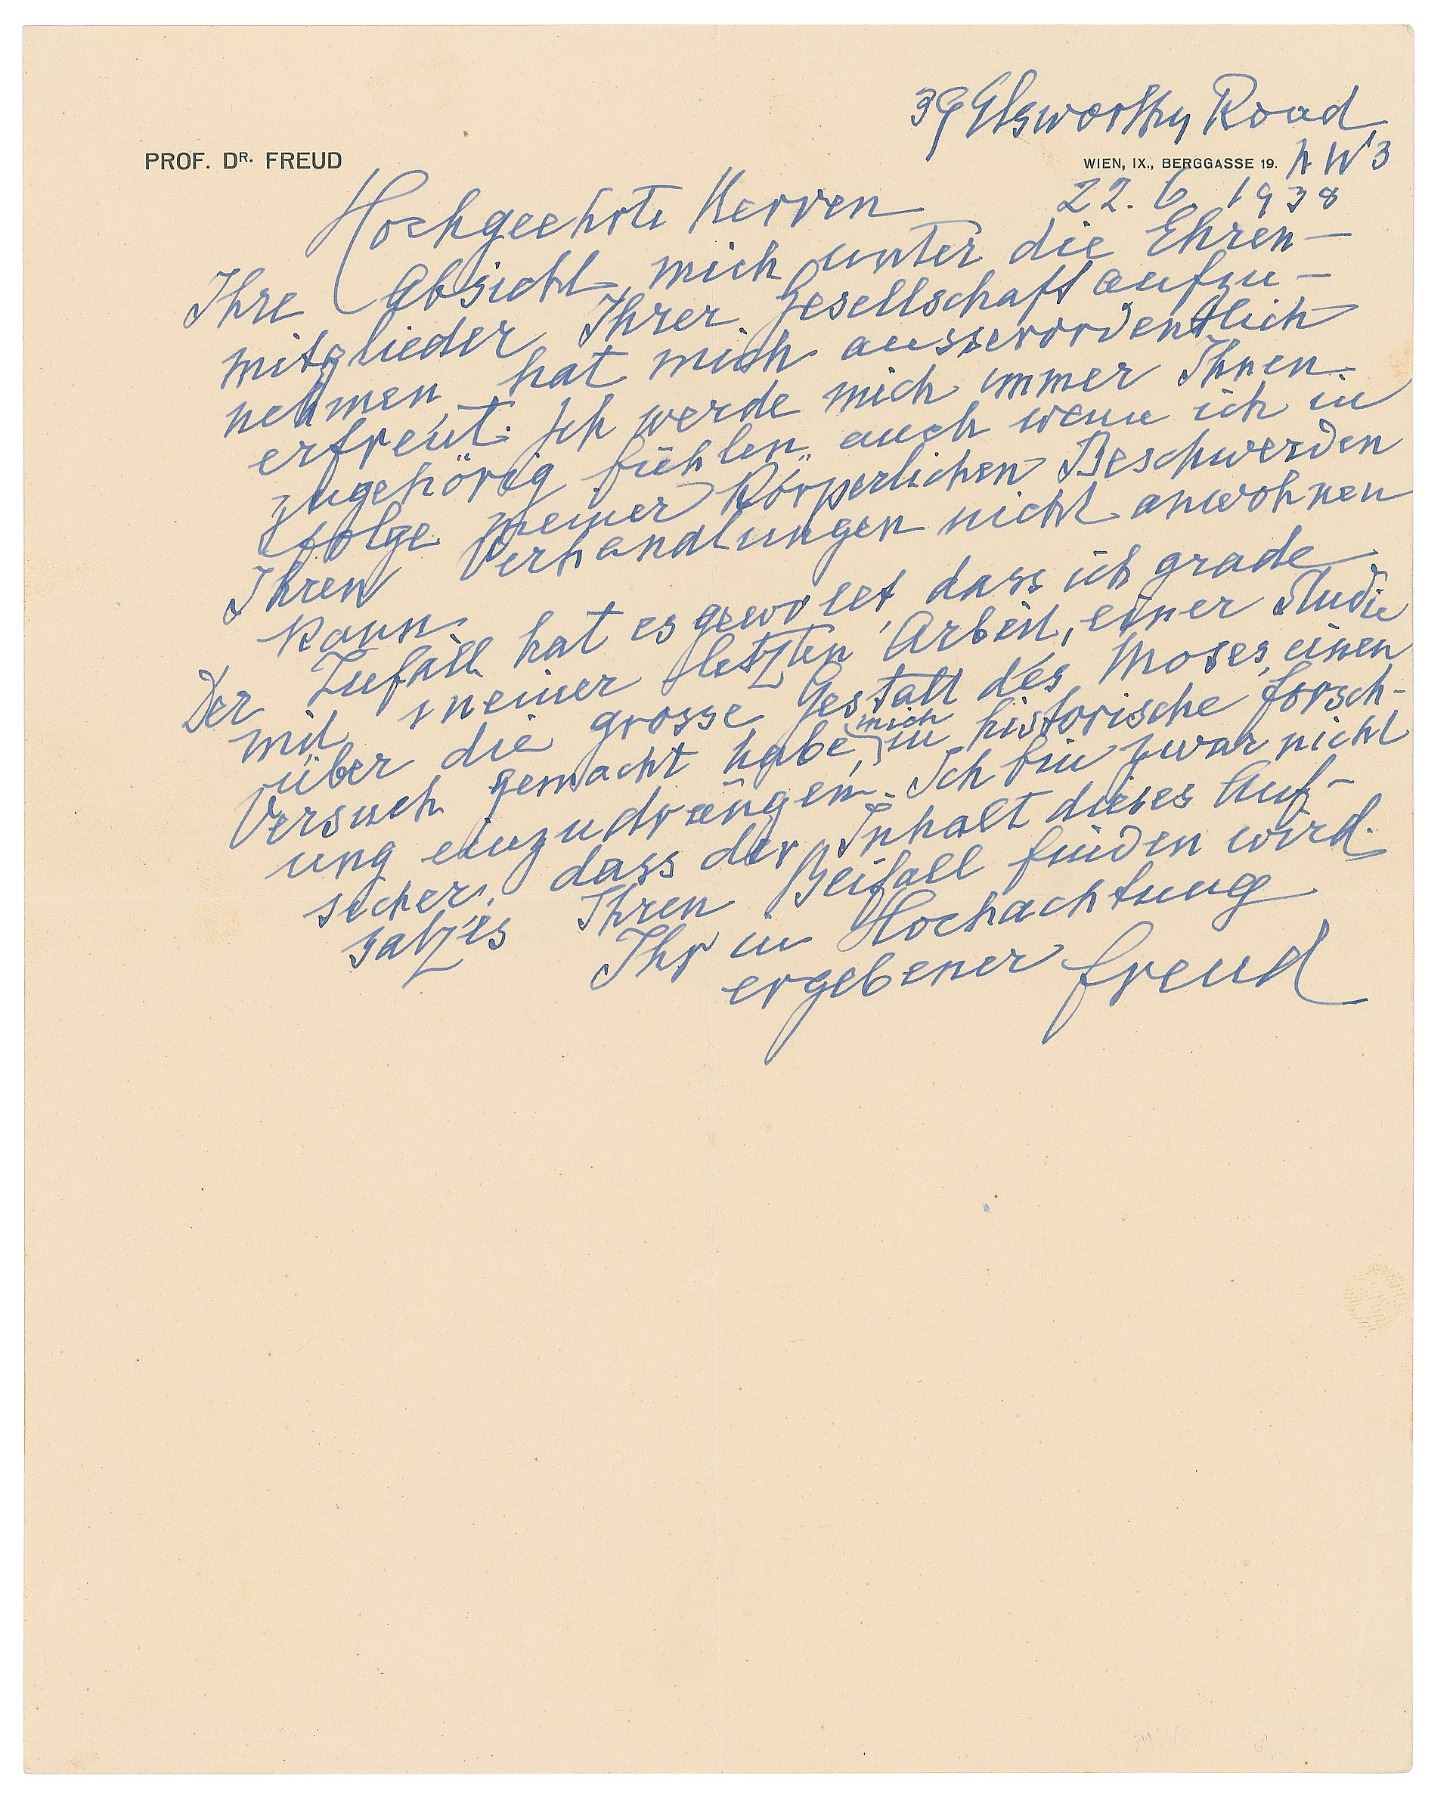 39 Elsworthy Road
PROF. DR. FREUD
WIEN, IX., BERGGASSE 19. NW 3
22. 6. 1938
Hochgeehrte Herren
Ihre Absicht, mich unter die Ehren-
mitglieder Ihrer Gesellschaft aufzu-
nehmen, hat mich ausserordentlich
erfreut. Ich werde mich immer Ihnen
zugehörig fühlen, auch wenn ich in
folge meiner körperlichen Beschwerden
Ihren Verhandlungen nicht anwohnen
kann.
Der Zufall hat es gewollt, dass ich grade
mit meiner letzten Arbeit, einer Studie
über die grosse Gestalt des Moses, einen
Versuch gemacht habe, mich in historische Forsch-
ung einzudrängen. Ich bin zwar nicht
sicher, dass der Inhalt dieses Auf-
satzes Ihren Beifall finden wird.
Ihr in Hochachtung
ergebener Freud